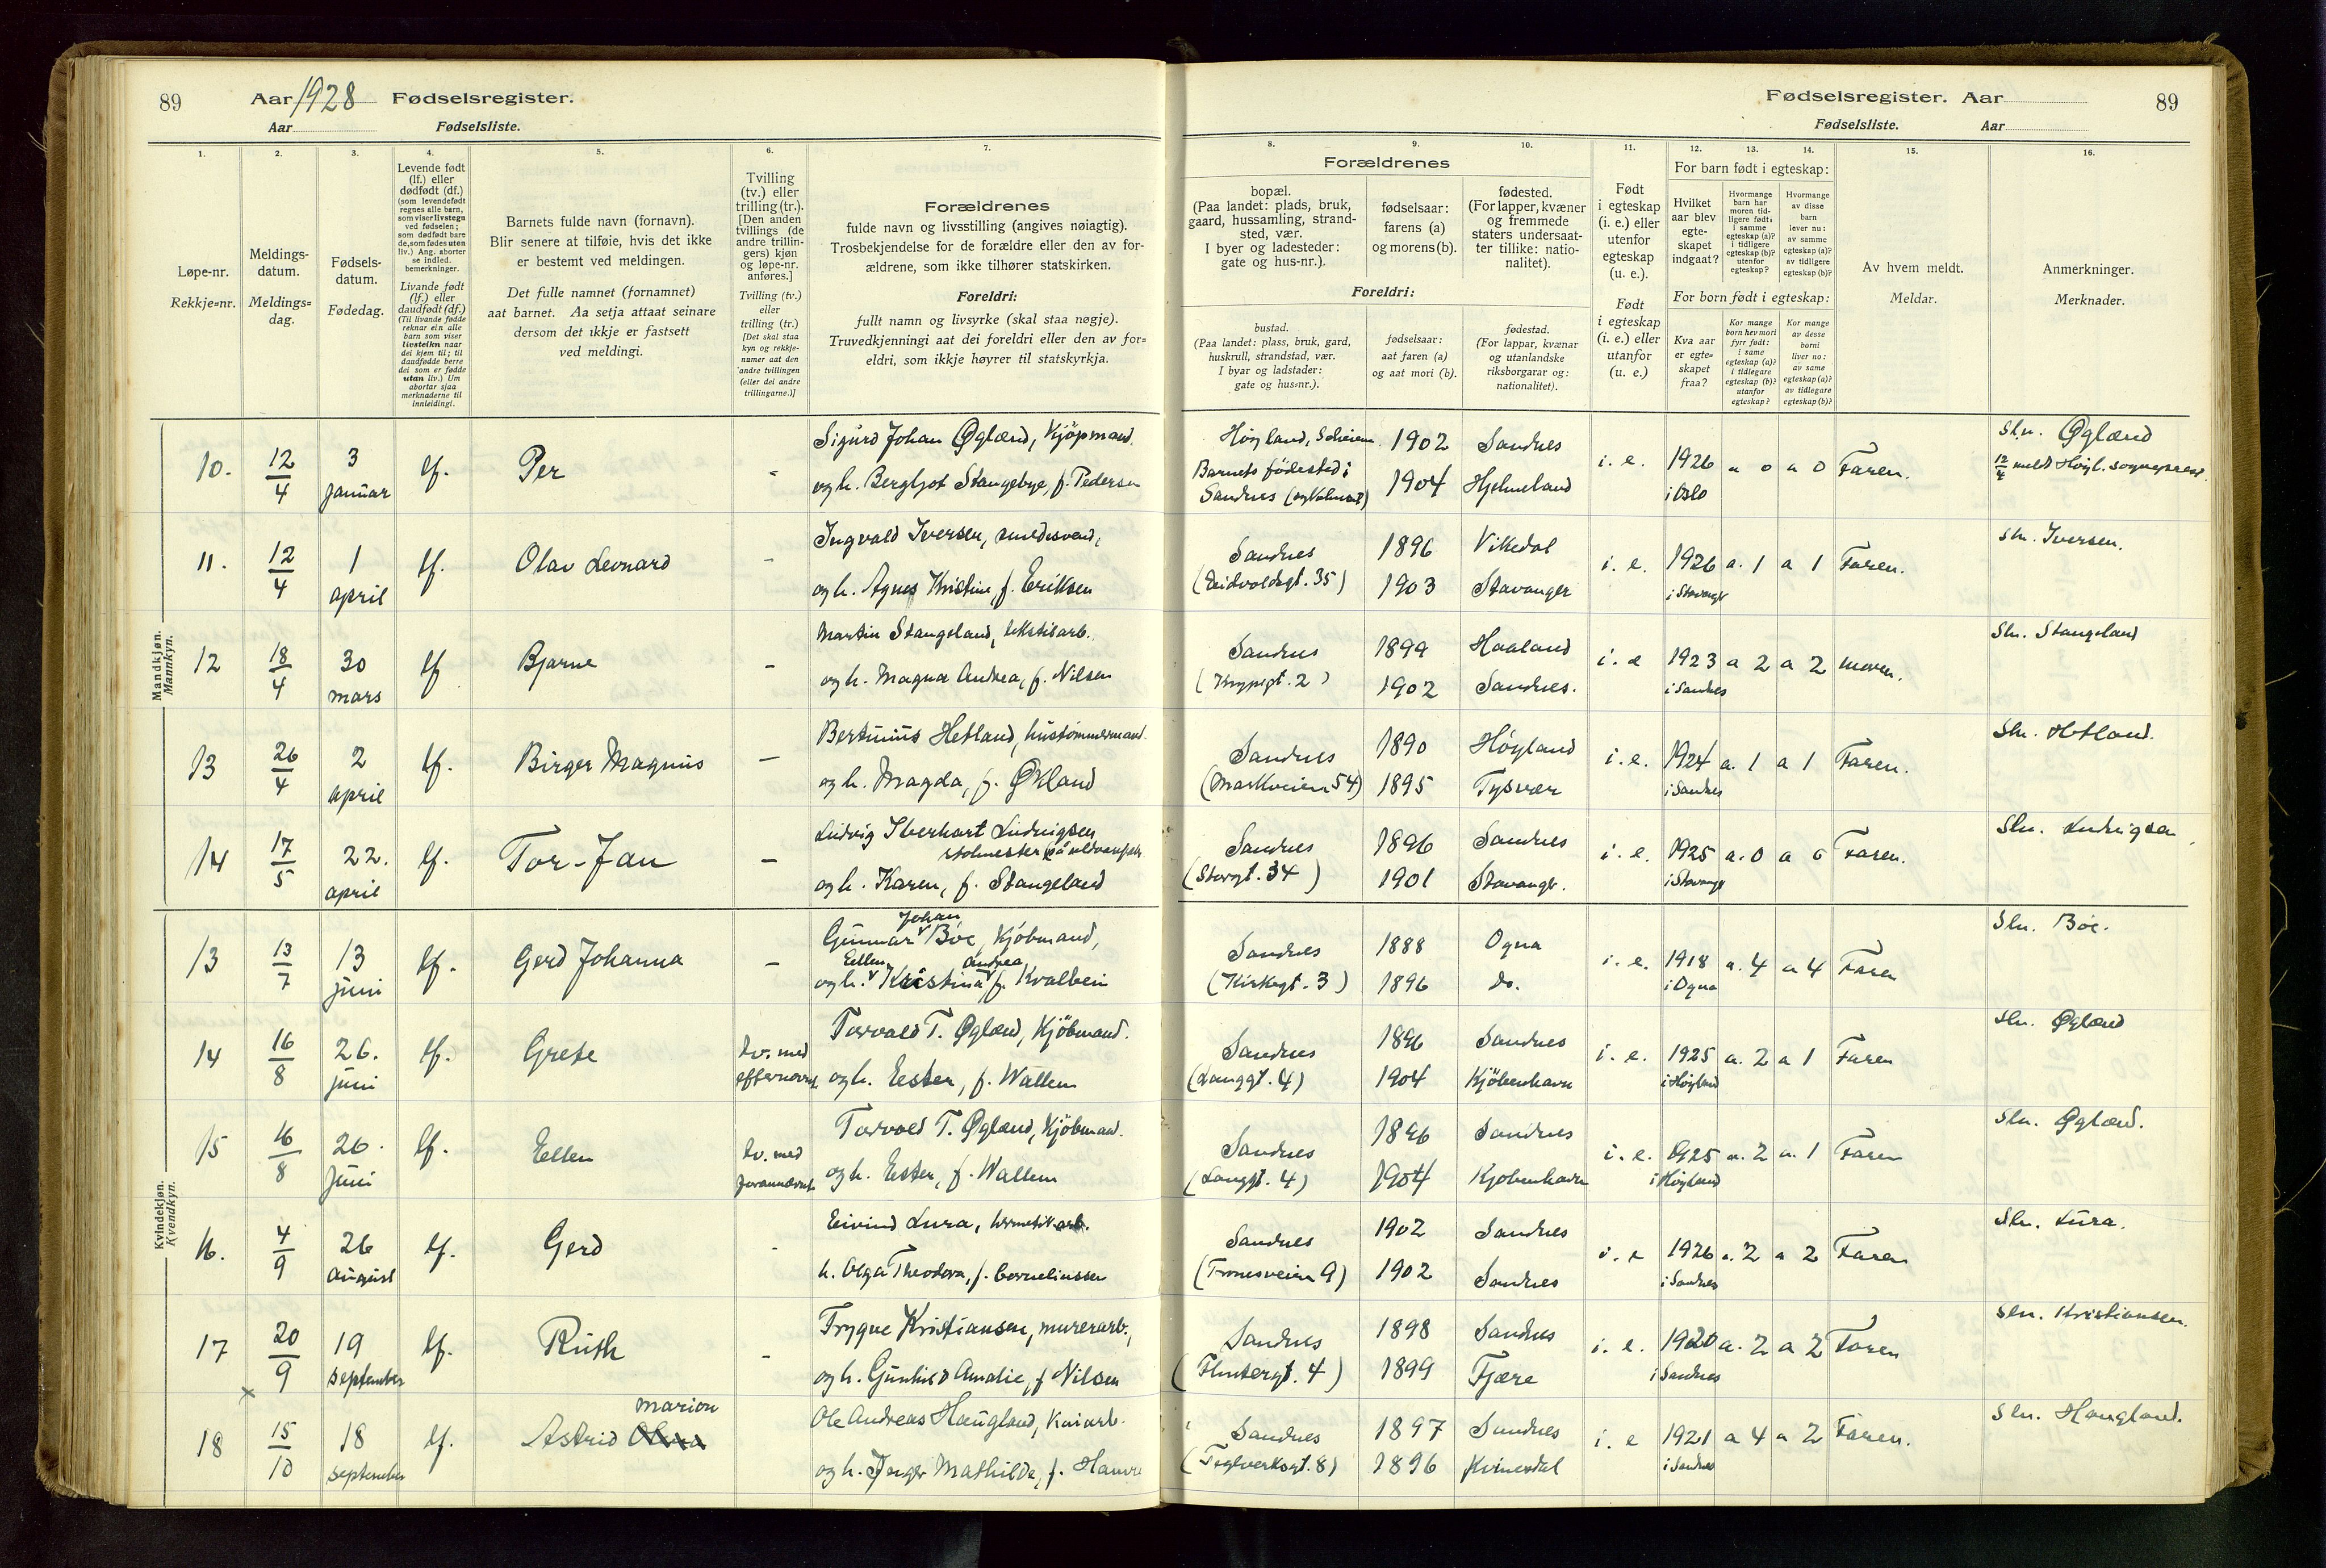 89 Aar 1928 Fødselsregister.
Aar Fødselsliste.
Fødselsregister. Aar 89
Fødselsliste. Aar
1. 2. 3. 4. 5. 6. 7. 8. 9. 10. 11. 12. 13. 14. 15. 16.
Løpe-nr.
Rekkje-nr.
Meldings-
datum.
Meldings-
dag.
Fødsels-
datum.
Fødedag.
Levende født
(lf.) eller
dødfødt (df.)
(som levendefødt
regnes alle barn,
som viser livstegn
ved fødselen;
som dødfødt bare
de, som fødes uten
liv.) Ang. aborter
se indled.
bemerkninger.
Livande født
(lf.) eller
daudfødt (df.)
(Til livande fødde
reknar ein alle
barn som viser
livsteikn naar
dei kjem til; til
daudfødde berre
dei som er fødde
utan liv.) Um
abortar sjaa
merknaderne til
innleidingi.
Barnets fulde navn (fornavn).
Blir senere at tilføie, hvis det ikke
er bestemt ved meldingen.
Det fulle namnet (fornamnet)
aat barnet. Aa setja attaat seinare
dersom det ikkje er fastsett
ved meldingi.
Tvilling
(tv.) eller
trilling (tr.).
[Den anden
tvillings (de
andre trillin-
gers) kjøn
og løpe-nr.
anføres.]
Tvilling (tv.)
eller
trilling (tr.)
[Det skal staa
kyn og rekkje-
numer aat den
andre tvillingen
(eller dei andre
trillingarne.)]
Forældrenes
fulde navn og livsstilling (angives nøiagtig).
Trosbekjendelse for de forældre eller den av for-
ældrene, som ikke tilhører statskirken.
Foreldri:
fullt namn og livsyrke (skal staa nøgje).
Truvedkjenningi aat dei foreldri eller den av for-
eldri, som ikkje høyrer til statskyrkja.
Forældrenes
bopæl.
(Paa landet: plads, bruk,
gaard, hussamling, strand-
sted, vær.
I byer og ladesteder:
gate og hus-nr.).
fødselsaar:
farens (a)
og morens (b).
fødested.
(For lapper, kvæner
og fremmede
staters undersaat-
ter tillike: natio-
nalitet).
Foreldri:
bustad.
(Paa landet: plass, bruk, gard,
huskrull, strandstad, vær.
I byar og ladstader:
gate og hus-nr.).
fødselsaar:
aat faren (a)
og aat mori (b).
fødestad.
(For lappar, kvænar
og utanlandske
riksborgarar og:
nationalitet).
Født
i egteskap
(i. e.) eller
utenfor
egteskap
(u. e.).
Født
i egteskap
(i. e.) eller
utanfor
(u. e.)
For barn født i egteskap:
Hvilket
aar blev
egte-
skapet
indgaat?
Hvormange
barn har
moren tid-
ligere født:
i samme
egteskap (a)?
i tidligere
egteskap (b)?
utenfor
egteskap?
Hvormange
av disse
barn
lever nu:
av samme
egteskap (a)?
av tidligere
egteskap (b)?
For born født i egteskap:
Kva aar
er egte-
skapet
fraa?
Kor mange
born hev mori
fyrr født:
i same
egteskap (a)?
i tidlegare
egteskap (b)?
utanfor
egteskap?
Kor mange
av desse
borni
liver no:
av same
egteskap (a)?
av tidlegare
egteskap (b)?
Av hvem meldt.
Meldar.
Anmerkninger.
Merknader.
Mandkjøn.
Mannkyn.
10. 12/4 3 januar lf. Per -
Sigurd Johan Øglænd, Kjøpmand.
og h. Bergljot Stangebye, f. Pedersen
Høyland,
Barnets fødested:
Sandnes
1902 Sandnes
1904 Hjelmeland
i. e. 1926 i Oslo a 0 a 0 Faren.
Sln. Øglænd
12/4 meld Høyl. sogneprest.
11. 12/4 1 april lf. Olav Leonard -
Ingvald Iversen, smedsvend,
og h. Agnes Kristine, f. Eriksen
Sandnes
(Eidsvoldsgt. 35)
1896 Vikedal
1903 Stavanger
i. e. 1926 i Stavangr a. 1 a 1 Faren.
Sln. Iversen.
12 18/4 30 mars lf Bjarne -
Martin Stangeland, tekstilarb.
og h. Magna Andrea, f. Nilsen
Sandnes
1899 Haaland
1902 Sandnes.
i. e 1923 i Sandnes a 2 a 2 moren.
Sln. Stangeland
13 26/4 2 april lf. Birger Magnus -
Bertinius Hetland, hustømmermand.
og h. Magda, f. Økland
Sandnes
(Markveien 54)
1890 Høyland
1895 Tysvær
i. e. 1924 i Sandnes a. 1 a 1 Faren.
Sln. Hetland.
14 17/5 22. april lf. Tor-Jan -
Ludvig Iverhart Ludvigsen
og h. Karen, f. Stangeland
Sandnes
(Storgt. 34)
1896 Sandnes
1901 Stavangr.
i. e. 1925 i Stavangr a. 0 a 0 Faren.
Sln. Ludvigsen
Kvindekjøn.
Kvendkyn.
13 13/7 13 juni lf. Gerd Johanna -
Johan
Gunnar Bøe, Kjøbmand,
Ellen Andrea
og h. Kristina f. Kvalbein
Sandnes
(Kirkegt. 3)
1888 Ogna
1896 do.
i. e. 1918 i Ogna a. 4 a 4 Faren
Sln. Bøe.
14 16/8 26. juni lf. Grete tv. med efternevnt
Torvald T. Øglænd, Kjöbmand.
og h. Ester, f. Wallem
Sandnes
(Langgt. 4)
1896 Sandnes
1904 Kjöbenhavn
i. e. 1925 i Høyland a. 2 a 1 Faren
Sln. Øglænd
15 16/8 26. juni lf. Ellen tv. med forannevnt
Torvald T. Øglænd, Kjöbmand.
og h. Ester, f. Wallem
Sandnes
(Langgt. 4)
1896 Sandnes
1904 Kjøbenhavn
i. e. 1925 i Høyland a. 2 a. 1 Faren
Sln. Øglænd.
16. 4/9 26 August lf. Gerd -
Eivind Lura, hermetikarb.
h. Olga Theodora, f. Corneliussen
Sandnes
(Tronesveien 9)
1902 Sandnes
1902 Sandnes
i. e 1926 i Sandnes a. 2 a 2 Faren
Sln. Lura.
17 20/9 19 september lf. Ruth -
Trygve Kristiansen, murerarb.,
og h. Gunhild Amalie, f Nilsen
Sandnes
(Flintergt. 4)
1898 Sandnes
1899 Fjære
i. e. 1920 i Sandnes a. 2 a 2 Faren
Sln. Kristiansen.
x
18 15/10 18 september lf. Astrid Marion
Ole Andreas Haugland, Kaiarb.
og h. Inger Mathilde, f. Hamre
Sandnes
(Teglverksgt. 8)
1897 Sandnes
1896 Kvinesdal
i. e 1921 i Sandnes a 4 a 2 Faren.
Sln. Haugland.